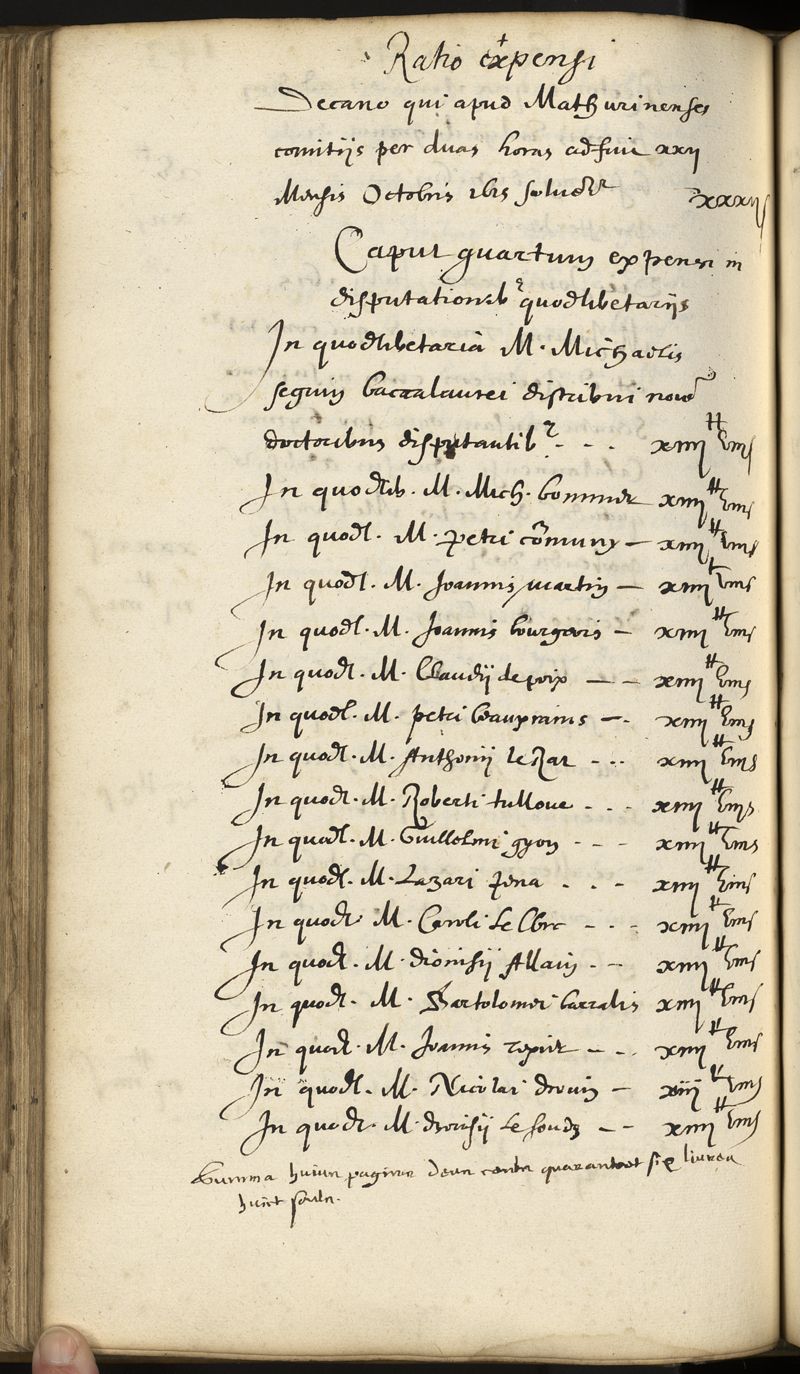 Ratio expensi
Decano qui apud Mathurinenses
comitijs per duas horas adfuit xxij
Mensis Octobris
xxxij s
Caput quartum expensi in
disputationib9 quodlibetarijs
In quodlibetaria M. Michaelis
seguin baccalaurei distribui novē
doctoribus disputantib9 - - - xiiij ℔ viij s
In quodlib. M. Mich. bommier xiiij ℔ viij s
In quodl. M. petri cōmuny - xiiij ℔ viij s
In quodl. M. Joannis martin - xiiij ℔ viij s
In quodl. M. Joannis bourgeois - xiiij ℔ viij s
In quodl. M. Claudij de poix - - xiiij ℔ viij s
In quodl. M. petri beauxrains -- xiiij ℔ viij s
In quodl. M. Anthonij le Rat - -- xiiij ℔ viij s
In quodl. M. Roberti tulloue - - - xiiij ℔ viij s
In quodl. M. Guillelmi gyon - - - xiiij ℔ viij s
In quodl. M. Lazari pena - - - xiiij ℔ viij s
In quodl. M. Caroli le Clerc - - - xiiij ℔ viij s
In quodl. M. dionisij Allain - - xiiij ℔ viij s
In quodl. M. Bartolomei barralis xiiij ℔ viij s
In quodl. M. Joannis - - - xiiij ℔ viij s
In quodl. M. Nicolai drouin - xiiij ℔ viij s
In quodl. M. dionisij le soubz - - xiiij ℔ viij s
Summa huius pagine deux cents quarante et six livres
huict soulz.